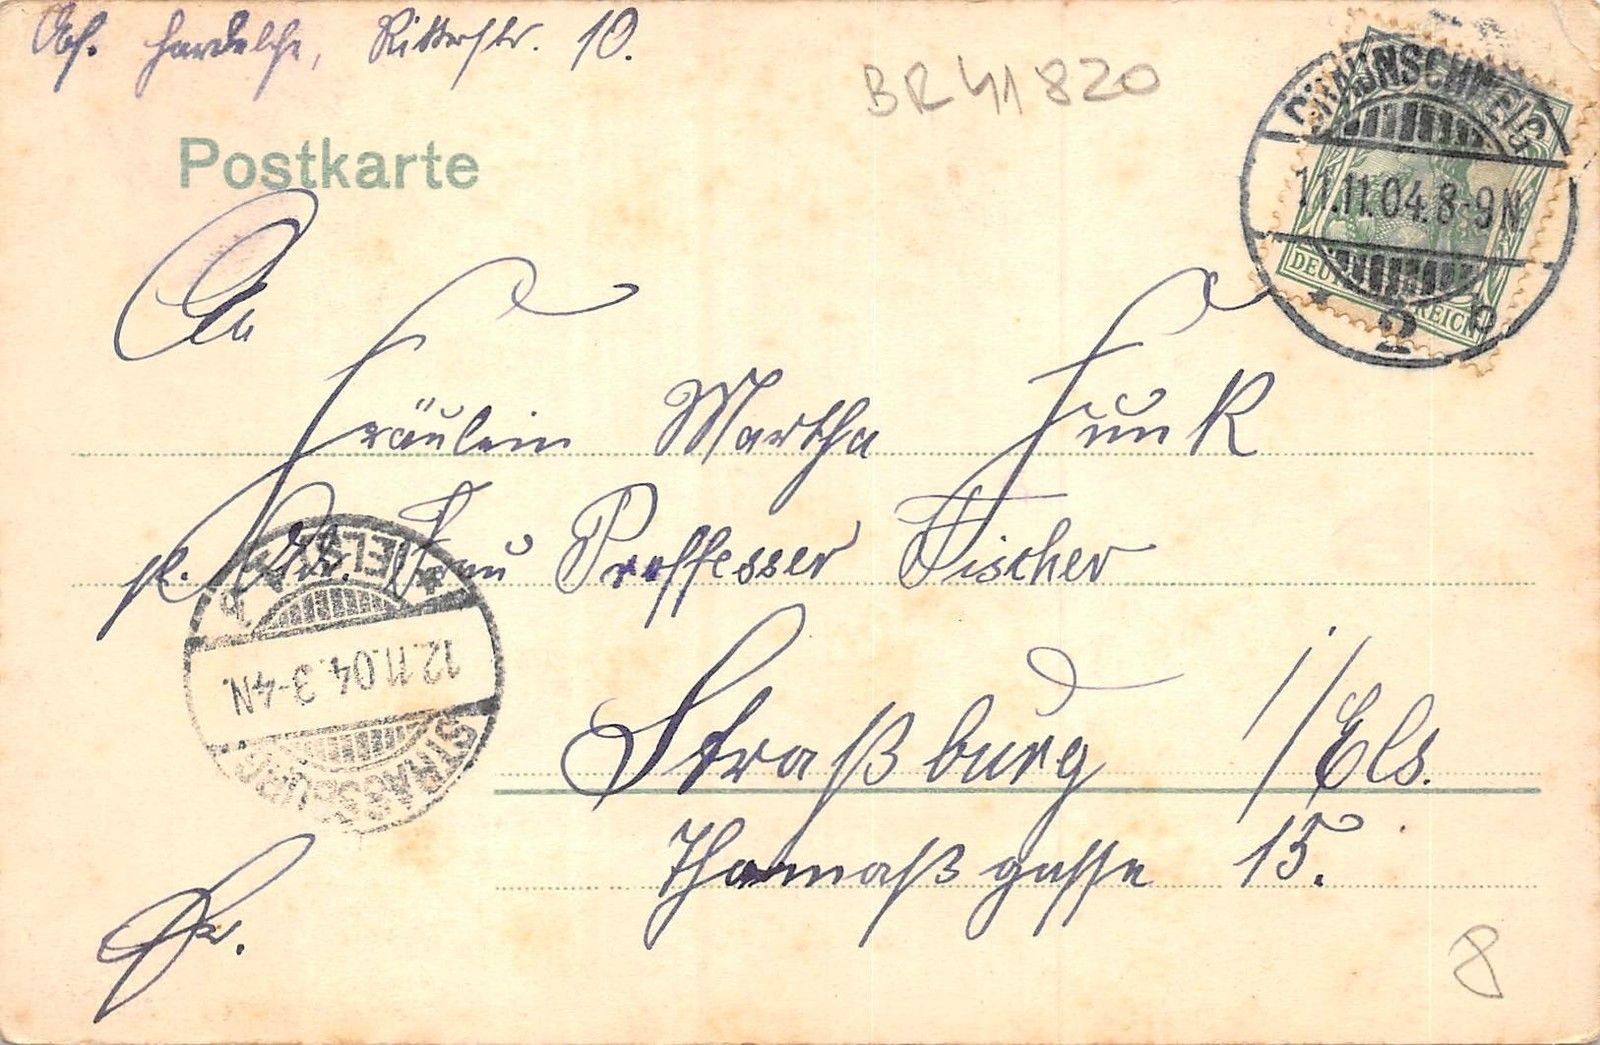 Abs. Hardelche, Ritterstr. 10.
BR41820
Postkarte
BRAUNSCHWEIG
11.11.04.8-9N.
* 2 p
DEUTSCHES REICH
An
Fräulein Martha Funk
p. Adr. Frau Proffesser Fischer
STRASSBURG
12.11.04.3-4N.
Straßburg i/Els.
Thomaßgasse 15.
Fr.
8